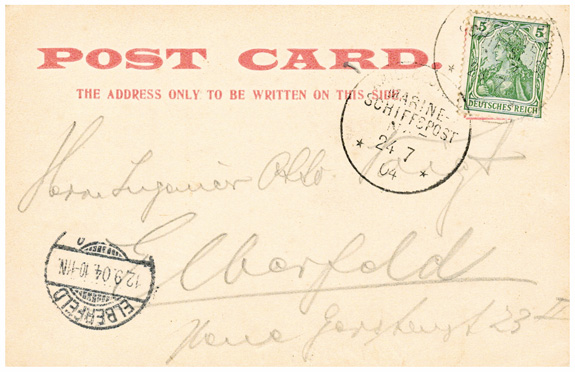 POST CARD.
THE ADDRESS ONLY TO BE WRITTEN ON THIS SIDE
5 5
DEUTSCHES REICH
MARINE-
SCHIFFSPOST
* 24 7 *
04
Herrn Ingenieur Otto
Elberfeld
23 II
ELBERFELD
12.9.04.10-11N.